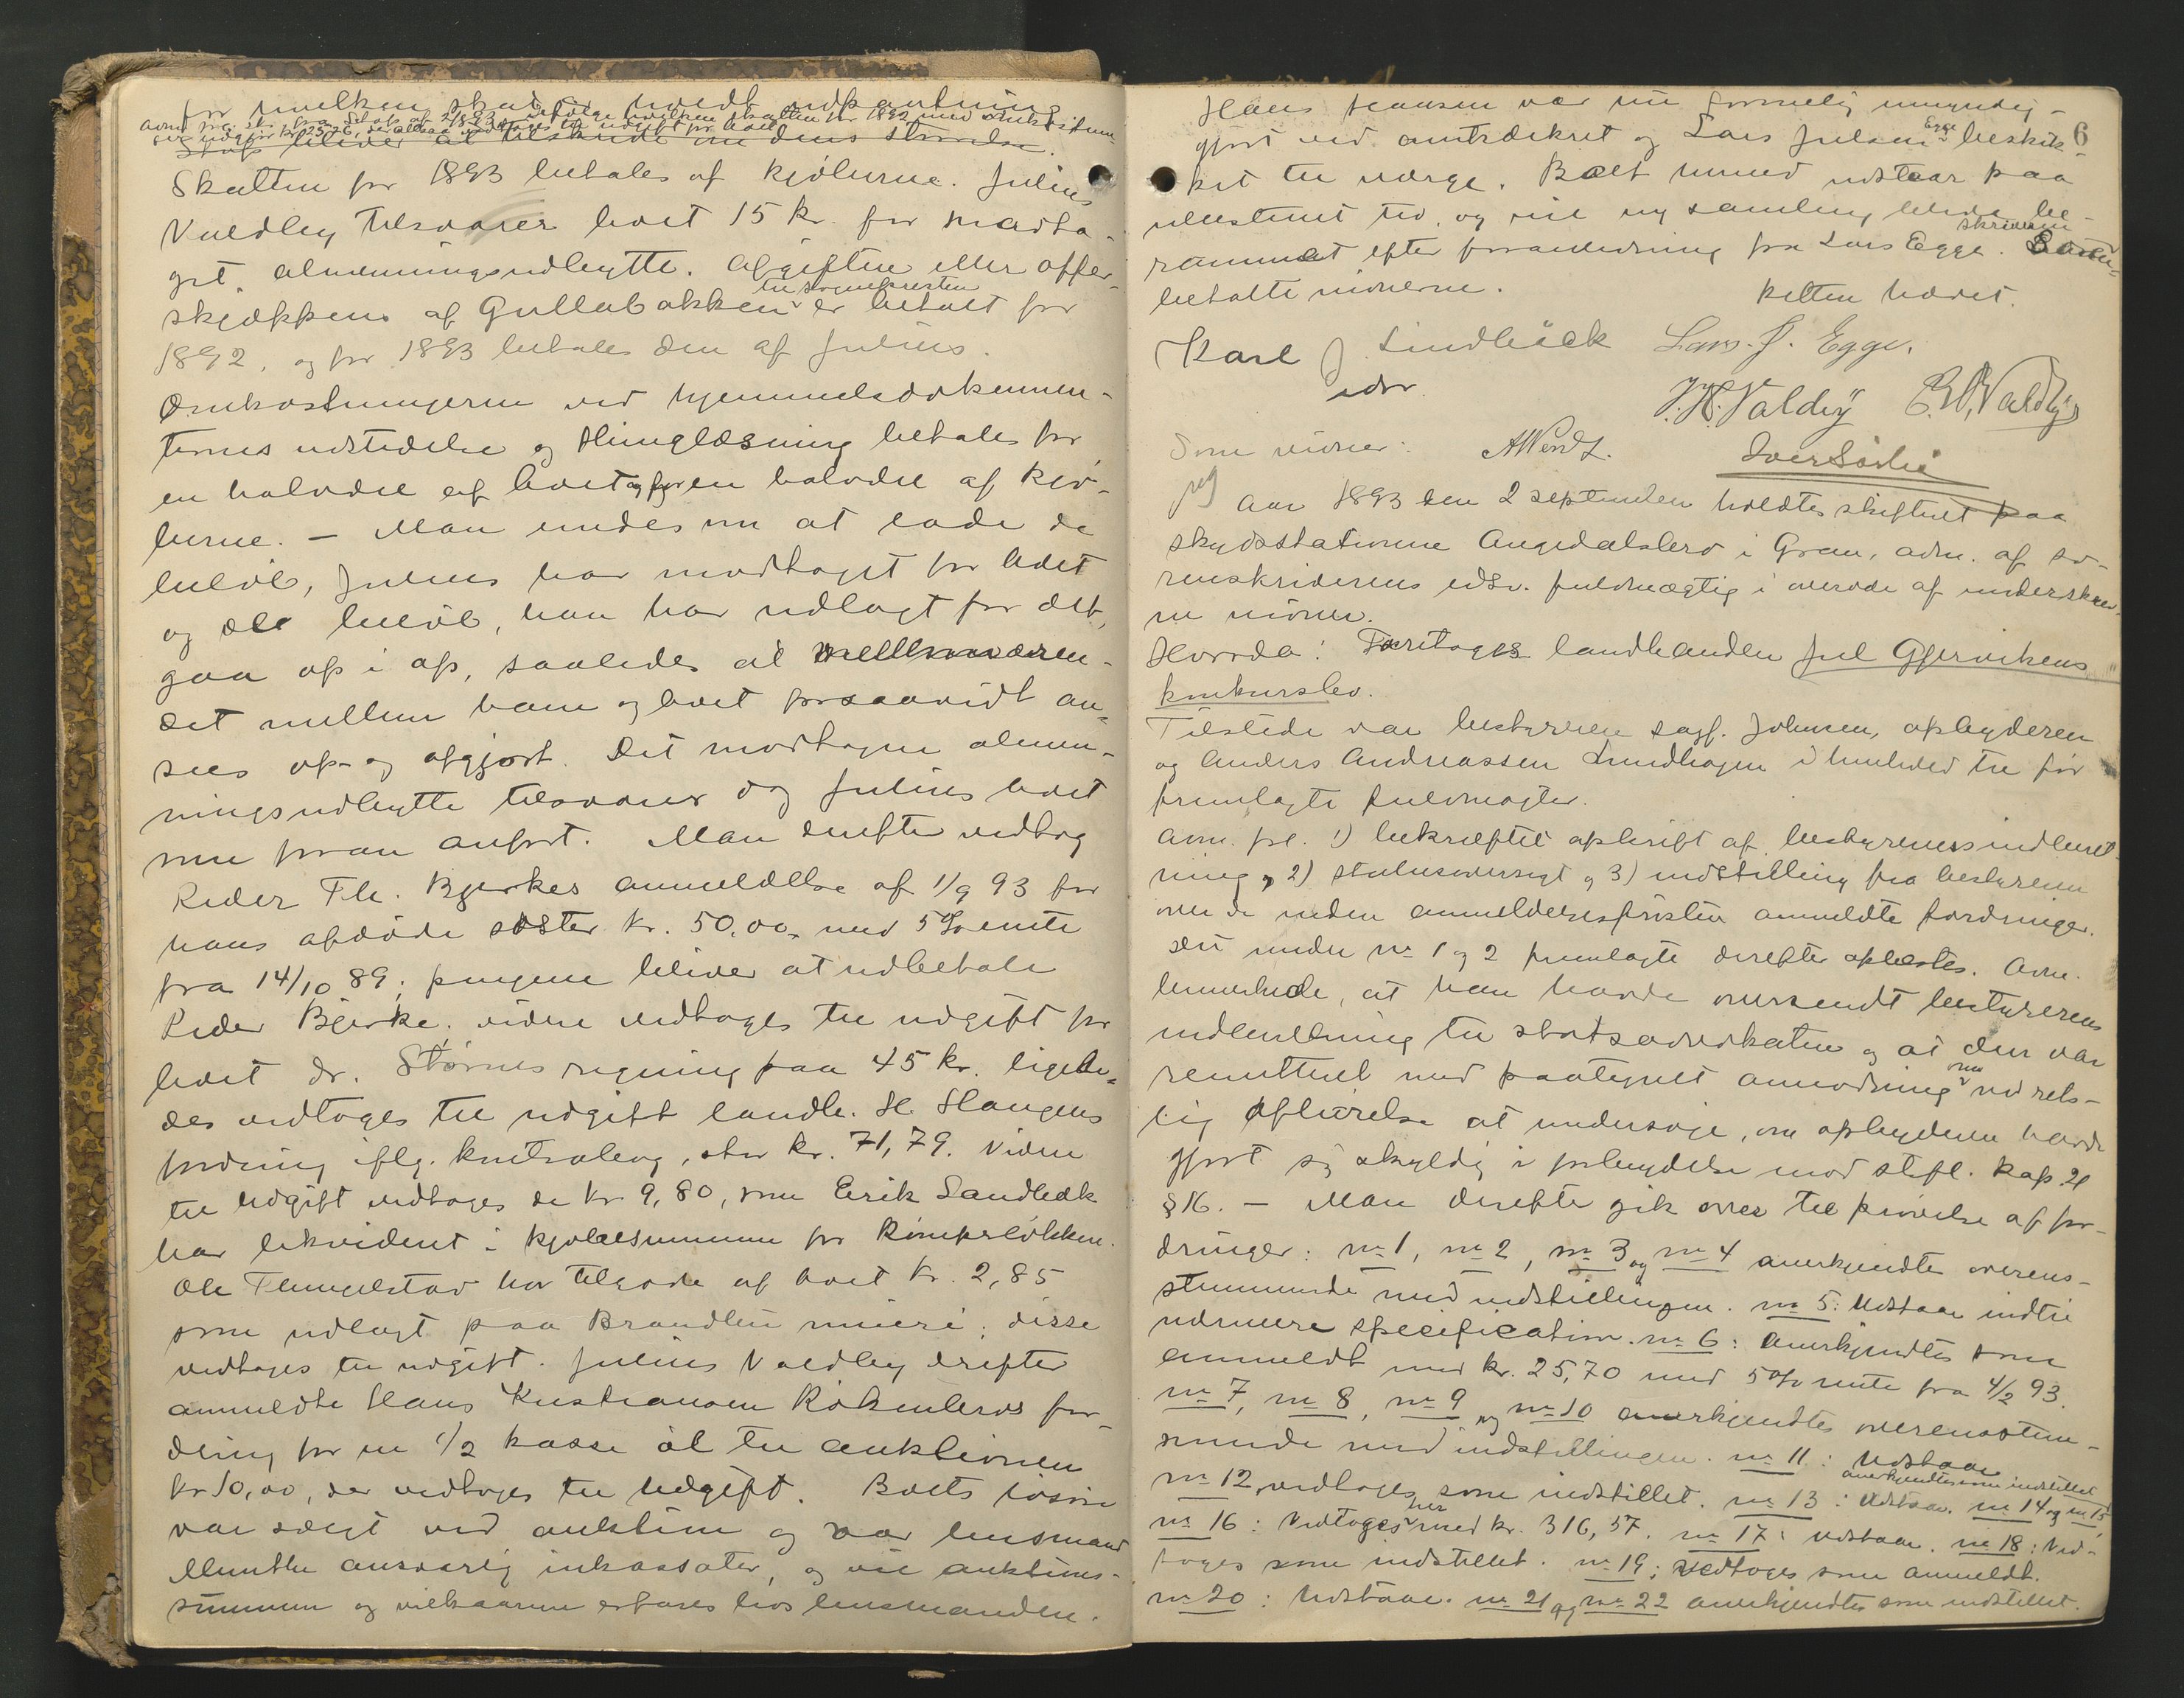 for hvilken skat er holdt udpantning
adm. frl. skr. fra Schøp af 2/1893 ifølge hvilken skatten for 1892 med omkostnin-
ger udgjør kr. 25,26, der altsaa vedtoges til udgift for boet
Stof bliver at tilskrive om dens størrelse.
Skatten for 1893 betales af kjøberne. Julius
Valdby tilsvarer boet 15 kr. for modta-
get almenningsudbytte. Afgiften eller offer-
skjæppen af Gullabakken til sognepresten er betalt for
1892, og for 1893 betales den af Julius.
Omkostningerne ved hjemmelsdokumen-
ternes udstedelse og thinglæsning betales for
en halvdel af boet og for en halvdel af kjø-
berne. – Man enedes om at lade de
beløb, Julius har modtaget for boet
og de beløb, han har udlagt for det,
gaa op i op, saaledes at mellemværen-
det mellem ham og boet forsaavidt an-
sees op- og afgjort. Det modtagne almen-
ningsudbytte tilsvarer dog Julius boet
som foran anført. Man derefter vedtog
Peder Fh. Bjerkes anmeldelse af 1/9 93 for
hans afdøde søster kr. 50,00 med 5% rente
fra 14/10 89; pengene bliver at udbetale
Peder Bjerke. videre vedtoges til udgift for
boet dr. Størnes regning paa 45 kr. ligele-
des vedtoges til udgift landh. H. Haugens
fordring iflg. kontrabog, stor kr. 71,79. Videre
til udgift vedtoges de kr. 9,80, som Erik Sandbæk
har likvideret i kjøbesummen for Rømpeløkken.
Ole Flungelstad har tilgode af boet kr. 2,85
som udlagt paa Brandbu meieri; disse
vedtoges til udgift. Julius Valdby derefter
anmeldte Hans Kristiansen Røkenbros for-
dring for en 1/2 kasse øl til auktionen
kr 10,00, der vedtoges til udgift. Boets løsøre
var solgt ved auktion og var lensmand
Munthe ansvarlig inkassator, og vil auktions-
summen og vilkaarene erfares hos lensmanden.
6
Hans Hansen var nu formelig umyndig-
gjort ved amtsdekret og Lars Julsen Egge beskik-
ket til værge. Boet hermed udstaar paa
ubestemt tid, og vil ny samling blive be-
rammet efter foranledning fra Lars Egge. Sorenskriveren
betalte vidnerne. Retten hævet.
Karl J. Lindbäck Lars. J. Egge.
edsv
J. H. Valdby E. H. Valdby
Som vidner: AWendt. Iver Sørlie
Aar 1893 den 2 september holdtes skifteret paa
skydsstationen Augedalsbro i Gran, adm. af so-
renskriverens edsv. fuldmægtig i overvær af underskrev-
ne vidner.
Hvorda: Foretoges landhandler Juel Gjervikens
konkursbo.
Tilstede var bestyreren sagf. Johnsen, opbyderen
og Anders Andreassen Lundhagen i henhold til før
fremlagte fuldmagter.
Adm. frl. 1) bekræftet afskrift af bestyrerens indberet-
ning, 2) statusoversigt og 3) indstilling fra bestyreren
over de inden anmeldelsesfristen anmeldte fordringer.
Det under no 1 og 2 fremlagte derefter oplæstes. Adm.
bemerkede, at han havde oversendt bestyrerens
indberetning til statsadvokaten og at den var
remitteret med paategnet anmodning om ved rets-
lig afhørelse at undersøge, om opbyderen havde
gjort sig skyldig i forbrydelse mod stfl. kap. 21
§ 16. – Man derefter gik over til prøvelse af for-
dringer: no 1, no 2, no 3 og no 4 anerkjendtes overens-
stemmende med indstillingen. no 5: Udstaar indtil
nærmere specifikation. no 6: Anerkjendtes som
anmeldt med kr. 25,70 med 5% rente fra 4/2 93.
no 7, no 8, no 9 og no 10 anerkjendtes overensstem-
mende med indstillingen. no 11: Udstaar
no 12 vedtoges som indstillet. no 13: Udstaar. no 14 og no 15 anerkjendtes som indstillet
no 16: Vedtoges her med kr. 316,57. no 17: Udstaar. no 18: Ved-
toges som indstillet. no 19: Vedtoges som anmeldt.
no 20: Udstaar. no 21 og no 22 anerkjendtes som indstillet.